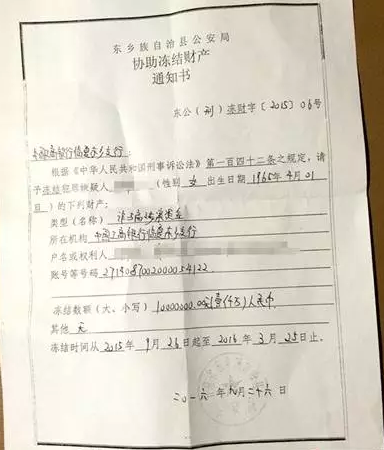 东乡族自治县公安局
协助冻结财产
通知书
东公（刑）冻财字〔2015〕06号
中国工商银行临夏东乡支行：
根据《中华人民共和国刑事诉讼法》第一百四十二条之规定，请
予冻结犯罪嫌疑人（性别 女 出生日期 1965年4月01
日）的下列财产：
类型（名称）
所在机构 中国工商银行临夏东乡支行
户名或权利人
账号等号码 2719087002000054122
冻结数额（大、小写）10000000.00元（壹仟万）人民币
其他 无
冻结时间从 2015年 9月 26日起至 2016年 3月 25日止。
二〇一六年九月二十六日